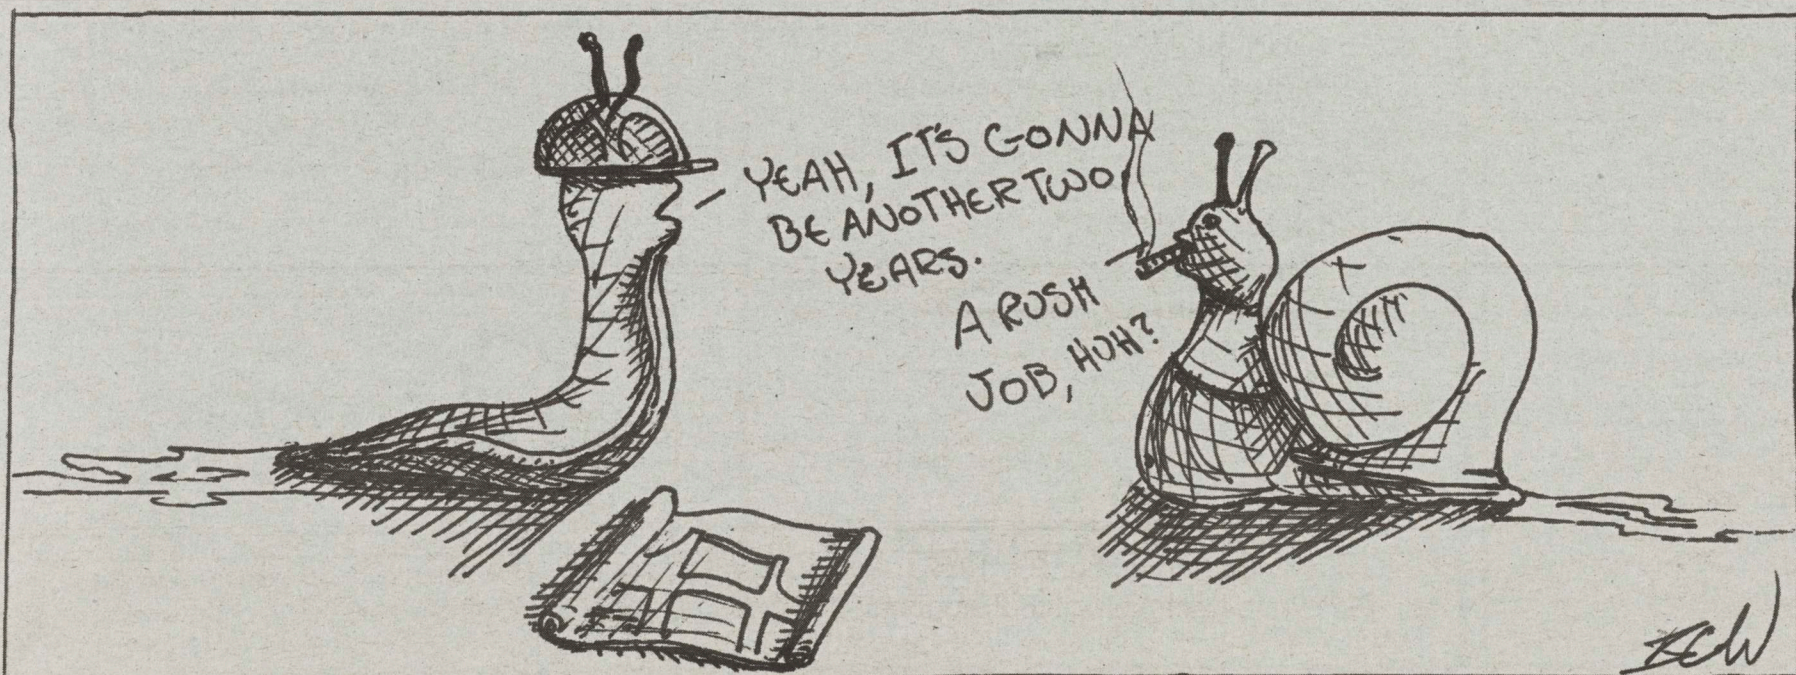 YEAH, IT'S GONNA
BE ANOTHER TWO
YEARS.
A RUSH
JOB, HUH?